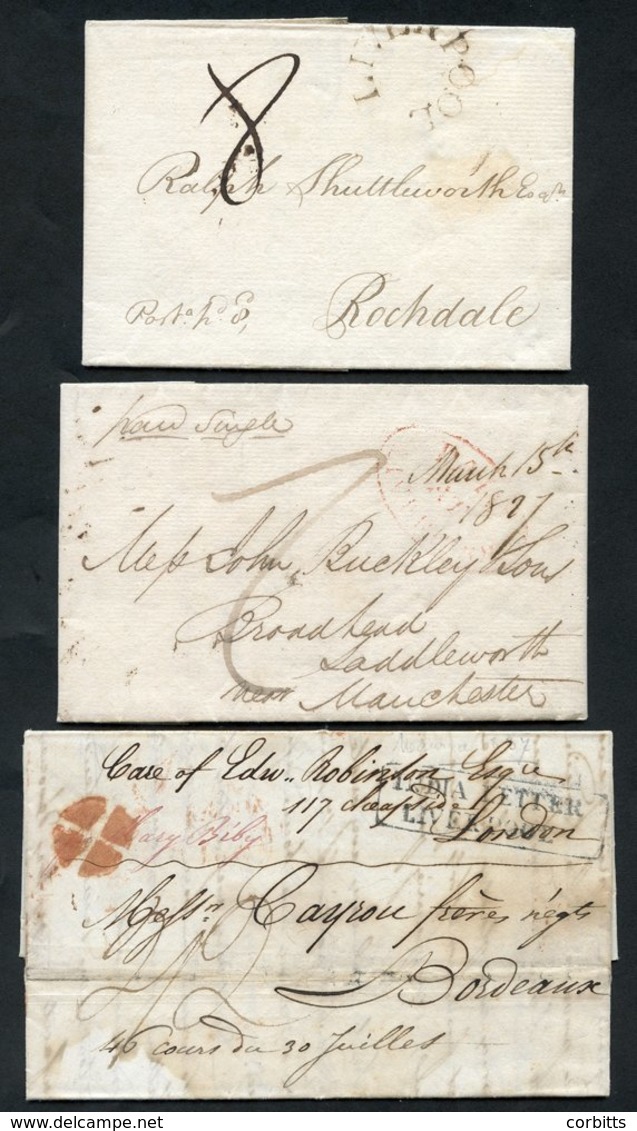 LIVERPOOL
8
Ralph Shuttleworth Esqr
Rochdale
paid Single
March 15th
1827
7
Mess John Buckley & Sons
Broadhead
Saddleworth
near Manchester
Care of Edw.. Robinson Esqre
117 cheapside
London
INDIA LETTER
LIVERPOOL
Mary Bibby
Messrs Cayrou frères négts
Bordeaux
46 cours du 30 Juillet
corbitts